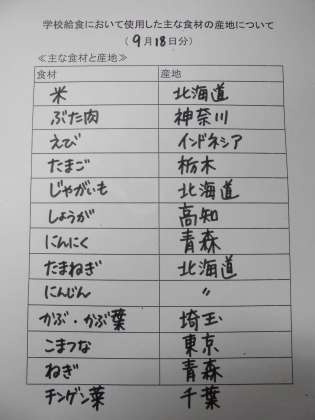 学校給食において使用した主な食材の産地について
(9月18日分)
≪主な食材と産地≫
食材 産地
米 北海道
ぶた肉 神奈川
えび インドネシア
たまご 栃木
じゃがいも 北海道
しょうが 高知
にんにく 青森
たまねぎ 北海道
にんじん 〃
かぶ・かぶ葉 埼玉
こまつな 東京
ねぎ 青森
チンゲン菜 千葉